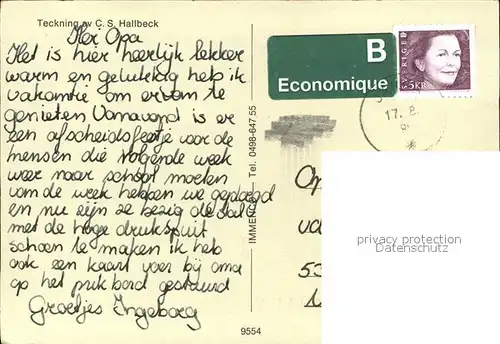 Teckning av C. S. Hallbeck
Hoi Opa
Het is hier heerlijk lekker
warm en gelukkig heb ik
vakantie om ervan te
genieten Vanavond is er
een afscheidsfeestje voor de
mensen die volgende week
weer naar school moeten
van de week hebben we geploegd
en nu zijn ze bezig de stal
met de hoge drukspuit
schoon te maken ik heb
ook een kaart voor bij oma
op het prikbord gestuurd
Groetjes Ingeborg
IMMENCO Tel. 0498-647 55
9554
B
Economique
SVERIGE
5KR
17. 8.
Op
va
53
privacy protection
Datenschutz